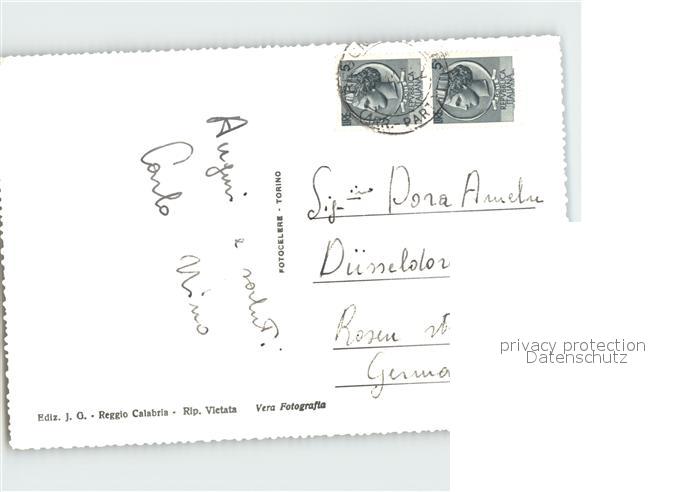 Auguri e saluti
Carlo Nino
FOTOCELERE - TORINO
Sig.ina Dora Amelu
Düsseldor
Rosen st
Germa
privacy protection
Datenschutz
Ediz. J. G. - Reggio Calabria - Rip. Vietata Vera Fotografia